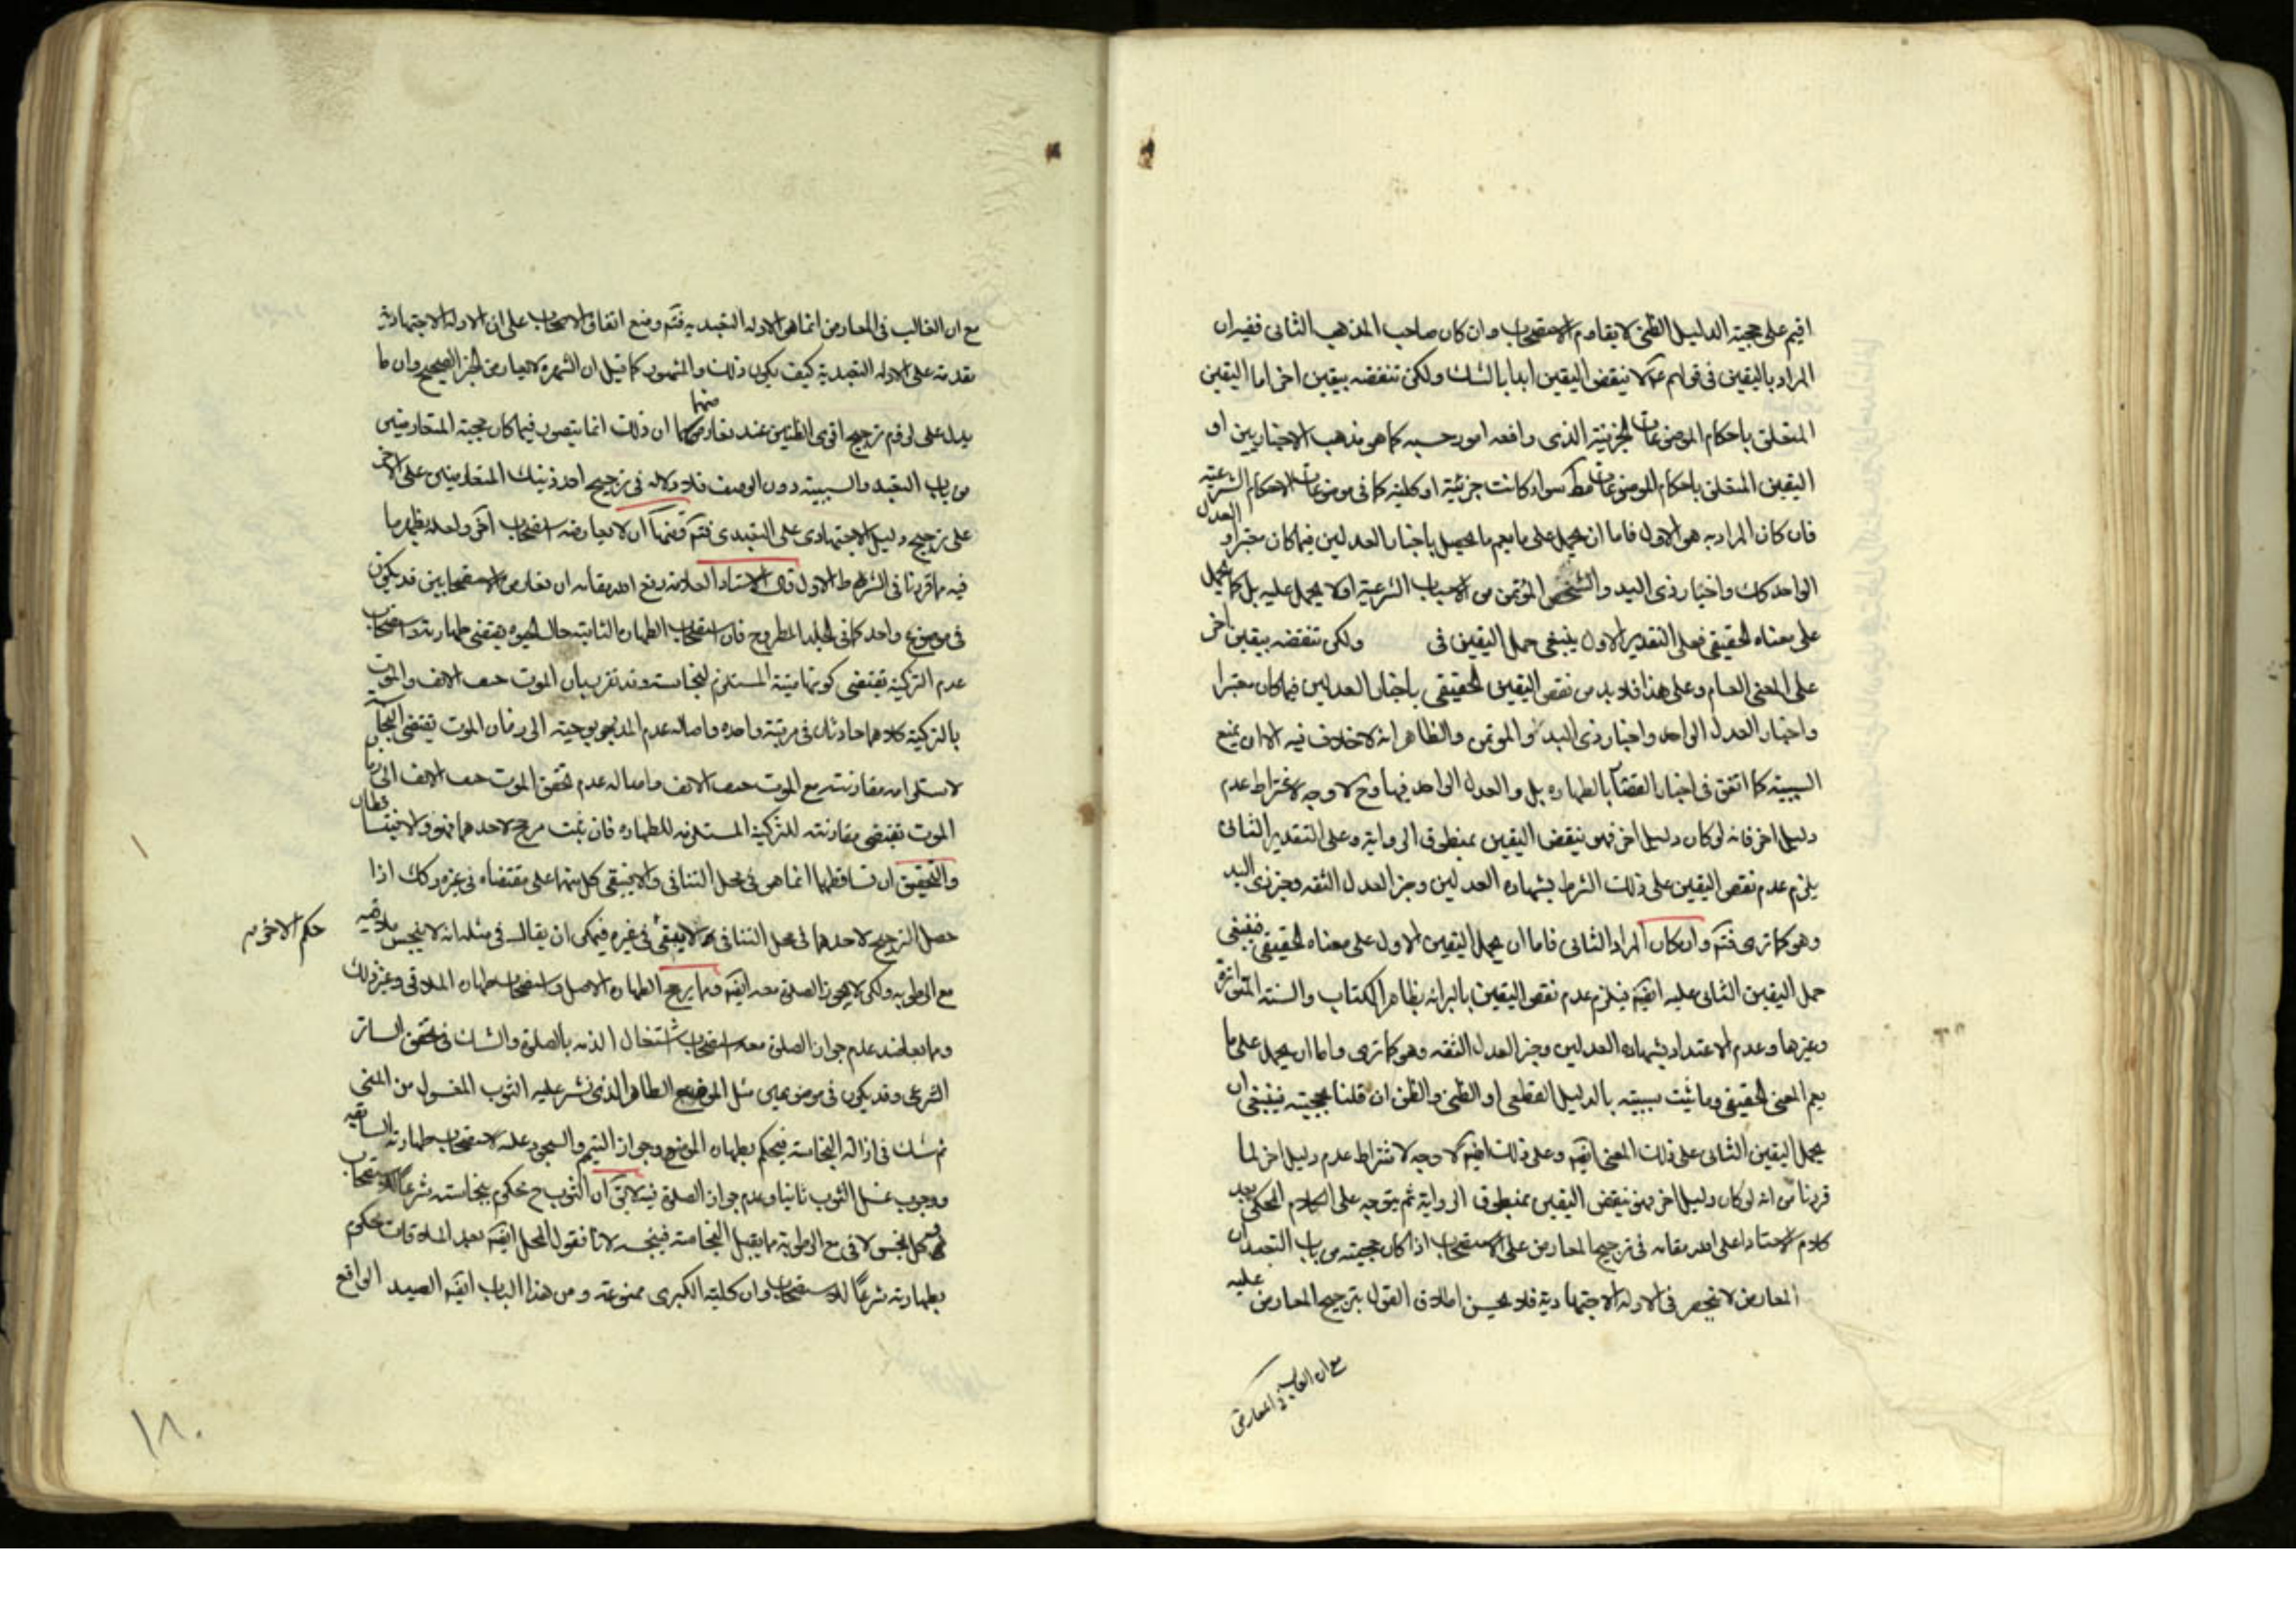 اقيم على حجية الدليل الظنى لا يقاوم الاستصحاب وان كان صاحب المذهب الثانى ففيه ان
المراد باليقين فى قولهم ع لا ينقض اليقين ابدا بالشك ولكن تنقضه بيقين اخر اما اليقين
المتعلق باحكام الموضوعات الجزئية الذى رافعه امور حسيه كما هو مذهب الاخباريين او
اليقين المتعلق باحكام الموضوعات مط سواء كانت جزئية او كلية كما فى موضوعات الاحكام الشرعية
فان كان المراد به هو الاول فاما ان يحمل على ما يعم ما يحصل باخبار العدلين فيما كان معتبرا و العدل
الواحد كك واخبار ذى اليد والشخص المؤتمن من الاسباب الشرعية او لا يحمل عليه بل كما يحمل
على معناه الحقيقى فعلى التقدير الاول ينبغى حمل اليقين فى ولكن تنقضه بيقين اخر
على المعنى العام وعلى هذا فلا بد من نقض اليقين الحقيقى باخبار العدلين فيما كان معتبرا
واخبار العدل الواحد واخبار ذى اليد و الموتمن والظاهر انه لا خلاف فيه الا ان يمنع
السببية كما اتفق فى اخبار بالطهاره بل و العدل الواحد فيها وح لا وجه لاشتراط عدم
دليل اخر فانه لو كان دليل اخر فهو ينقض اليقين بمنطوق الرواية وعلى التقدير الثانى
يلزم عدم نقض اليقين على ذلك الشرط بشهاده العدلين وخبر العدل الثقه وخبر ذى اليد
وهو كما ترى فتم وان كان المراد الثانى فاما ان يحمل اليقين الاول على معناه الحقيقى فينبغى
حمل اليقين الثانى عليه ايضا فيلزم عدم نقض اليقين بالبرائه بظاهر الكتاب والسنة المتواترة
وغيرها وعدم الاعتداد بشهاده العدلين وخبر العدل الثقه وهو كما ترى واما ان يحمل على ما
يعم المعنى الحقيقى وما ثبت سببيته بالدليل القطعى او الظنى والظن ان قلنا بحجيته فينبغى ان
يحمل اليقين الثانى على ذلك المعنى ايضا وعلى ذلك ايضا لا وجه لاشتراط عدم دليل اخر لما
قررنا من انه لو كان دليل اخر فهو ينقض اليقين بمنطوق الرواية ثم يتوجه على الكلام المحكى بعد
كلام الاستاد اعلى الله مقامه فى ترجيح المعارض على الاستصحاب اذا كان حجيته من باب التعبد ان
المعارض لا ينحصر فى الادلة الاجتهادية فلا يحسن اطلاق القول بترجيح المعارض عليه
مع ان الغالب فى المعارض
مع ان الغالب فى المعارض انما هو الادله التعبديه فتم ومنع اتفاق الاصحاب على ان الادلة الاجتهادية
مقدمة على الادله التعبدية كيف يكون ذلك والمشهور كما قيل ان الشهرة لا تعارض الخبر الصحيح وان ما
يدل على لزوم ترجيح اقوى الظنين عند تعارضهما ان ذلك انما يتصور فيما كان حجية المتعارضين
من باب التعبد والسببية دون الوصف فلا دلاله فى ترجيح احد ذينك المتعارضين على الاخر
على ترجيح دليل الاجتهادى على التعبدى فتم ومنها ان لا يعارضه استصحاب اخر ولعله يظهر ما
فيه مما قررنا فى الشرط الاول قال الاستاد العلامه رفع الله مقامه ان تعارض الاستصحابين قد يكون
فى موضوع واحد كما فى الجلد المطروح فان استصحاب الطهارة الثابتة حال الحيوة يقتضى طهارته واستصحاب
عدم التزكية يقتضى كونها ميتة المستلزم لنجاسته وقد تقرر بان الموت حتف الانف والموت
بالتزكية كلاهما حادثان فى مرتبة واحده واصاله عدم المذبوحية الى زمان الموت يقتضى النجاسة
لاستلزامه مقارنته مع الموت حتف الانف واصاله عدم تحقق الموت حتف الانف الى زمان
الموت تقتضى مقارنته للتزكية المستلزمه للطهاره فان ثبت مرجح لاحدهما فهو والا فيتساقطان
والتحقيق ان تساقطهما انما هو فى محل التنافى والا فيبقى كل منهما على مقتضاه فى غيره وكك اذا
حصل الترجيح لاحدهما فى محل التنافى لا ينتفى فى غيره فيمكن ان يقال فى مثله انه لا ينجس ملاقيه حكم الاخر منه
مع الرطوبه ولكن لا يجوز الصلوة معه ايضا ومما يرجح الطهاره الاصل واستصحاب طهاره الملاقى وغير ذلك
ومما يعاضد عدم جواز الصلوة معه استصحاب اشتغال الذمه بالصلوة والشك فى تحقق الساتر
الشرعى وقد يكون فى موضوعين مثل الموضع الطاهر الذى نشر عليه الثوب المغسول من المنى
ثم شك فى ازالة النجاسته فيحكم بطهاره الموضع وجواز التيمم والسجود عليه لاستصحاب طهارته السابقه
ووجوب غسل الثوب ثانيا وعدم جواز الصلوة فيه لا يق ان الثوب ح حكم بنجاسته شرعا للاستصحاب
وكل نجس لاقى مع الرطوبة ما يقبل النجاسته فينجسه لانا نقول المحل ايضا بعد الملاقات محكوم
بطهارته شرعًا للاستصحاب وان كلية الكبرى ممنوعة ومن هذا الباب ايضا الصيد الواقع
١٨٠